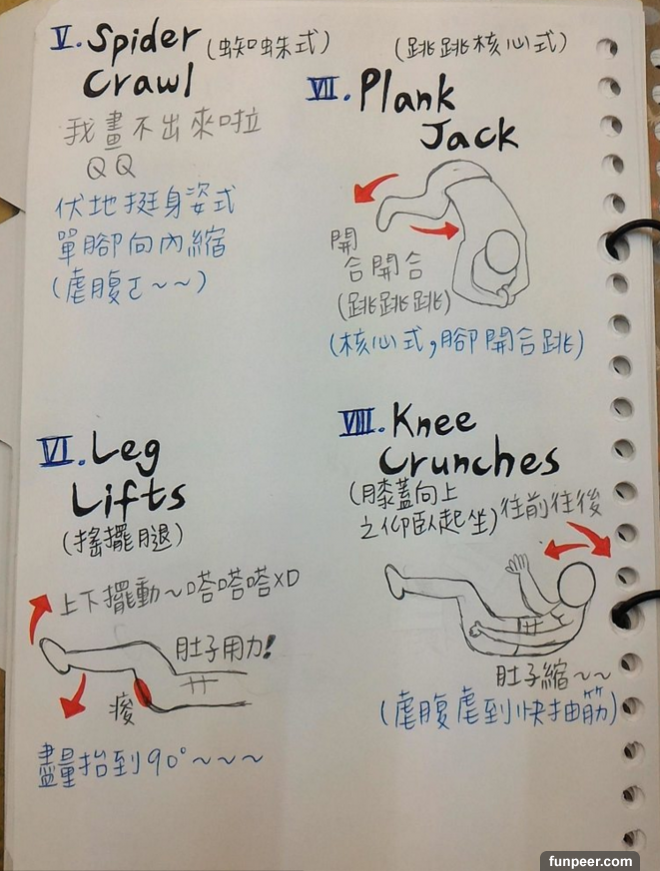 V. Spider (蜘蛛式)
Crawl
我畫不出來啦
QQ
伏地挺身姿式
單腳向內縮
(虐腹ㄛ~~)
VI. Leg
Lifts
(搖擺腿)
上下擺動~嗒嗒嗒XD
肚子用力!
痠
盡量抬到90°~~~~
(跳跳核心式)
VII. Plank
Jack
開
合開合
(跳跳跳)
(核心式,腳開合跳)
VIII. Knee
Crunches
(膝蓋向上
之仰臥起坐)往前往後
肚子縮~~
(虐腹虐到快抽筋)
funpeer.com